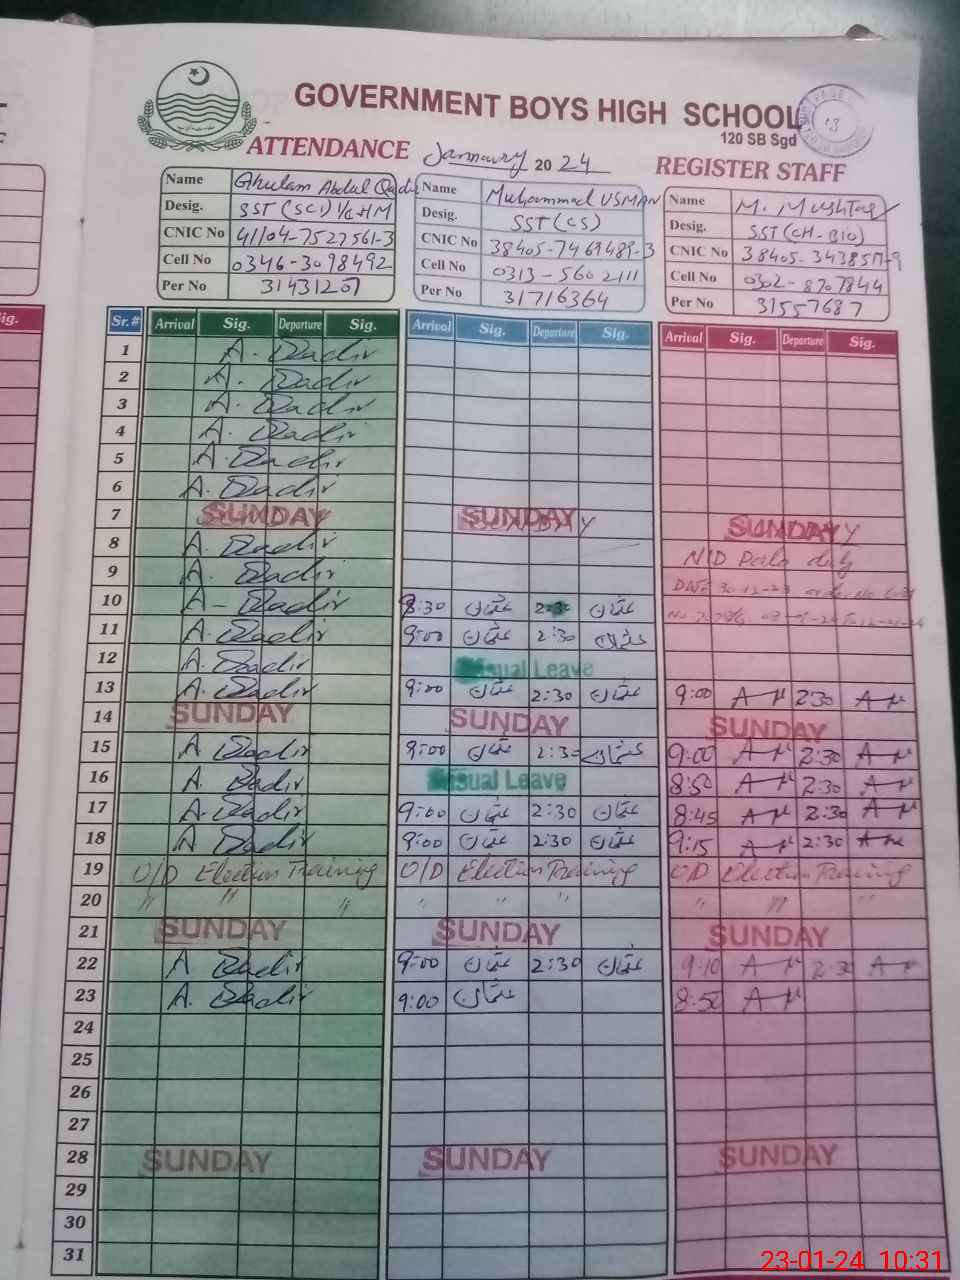 GOVERNMENT BOYS HIGH SCHOOL
120 SB Sgd
ATTENDANCE January 2024 REGISTER STAFF
Name Ghulam Abdul Qadir Name Muhammad USMAN Name M. Mushtaq
Desig. SST (SCI) I/C HM Desig. SST (CS) Desig. SST (CH-BIO)
CNIC No 41104-7527561-3 CNIC No 38405-7469489-3 CNIC No
Cell No 0346-3098492 Cell No 0313-5602111 Cell No 0302-8707844
Per No 31431201 Per No 31716364 Per No 31557687
Sr.# Arrival Sig. Departure Sig. Arrival Sig. Departure Sig. Arrival Sig. Departure Sig.
1 A. Qadir
2 A. Qadir
3 A. Qadir
4 A. Qadir
5 A. Qadir
6 A. Qadir
7 SUNDAY SUNDAY SUNDAY
8 A. Qadir
9 A. Qadir
10 A. Qadir 8:30 عثمان 2:30 عثمان
11 A. Qadir 9:00 عثمان 2:30 عثمان
12 A. Qadir Leave
13 A. Qadir 9:00 عثمان 2:30 عثمان 9:00 2:30
14 SUNDAY SUNDAY SUNDAY
15 A. Qadir 9:00 عثمان 2:30 عثمان 9:00 2:30
16 A. Qadir Leave 8:50 2:30
17 A. Qadir 9:00 عثمان 2:30 عثمان 8:45 2:30
18 A. Qadir 9:00 عثمان 2:30 عثمان 9:15 2:30
19 O/D Election Training O/D Election Training O/D Election Training
20 " " " " " " " " "
21 SUNDAY SUNDAY SUNDAY
22 A. Qadir 9:00 عثمان 2:30 عثمان 9:10 2:30
23 A. Qadir 9:00 عثمان 8:50
24
25
26
27
28 SUNDAY SUNDAY SUNDAY
29
30
31
23-01-24 10:31